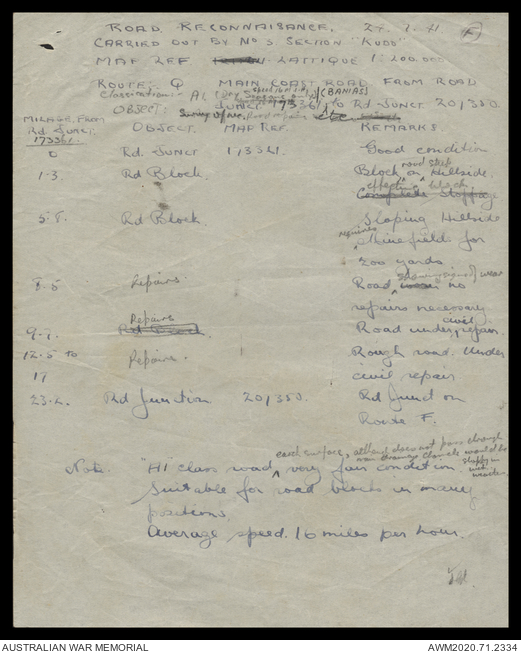 ROAD RECONNAISANCE. 27. 7. 41. F
CARRIED OUT BY No 3. SECTION "RUDD"
MAP REF LATTIQUE 1:200.000
ROUTE: Q MAIN COAST ROAD FROM ROAD
Classification:- A1 (Dry (BANIAS)
JUNCT 173361 to Rd JUNCT 201350.
OBJECT: Road repairs etc.
MILAGE FROM
Rd. JUNCT.
173361.
OBJECT. MAP REF. REMARKS.
0 Rd. JUNCT 173361. Good condition
1.3. Rd Block. Block on road steep Hillside.
effective block
Complete Stoppage
5.8. Rd Block. Sloping Hillside
requires Minefields for
200 yards.
8.5 Repairs. Road showing signs of wear no
repairs necessary
9.7. Repairs Rd Block. Road under civil repair.
12.5 to Repairs. Rough road. Under
17 civil repair
23.2. Rd Junction 201350. Rd Junct on
Route F.
Note. "A1 class road, very fair condition
good surface, altho it does not pass through
main drainage channels would be
sloppy in
wet
weather
Suitable for road blocks in many
positions.
Average speed. 16 miles per hour.
AUSTRALIAN WAR MEMORIAL AWM2020.71.2334